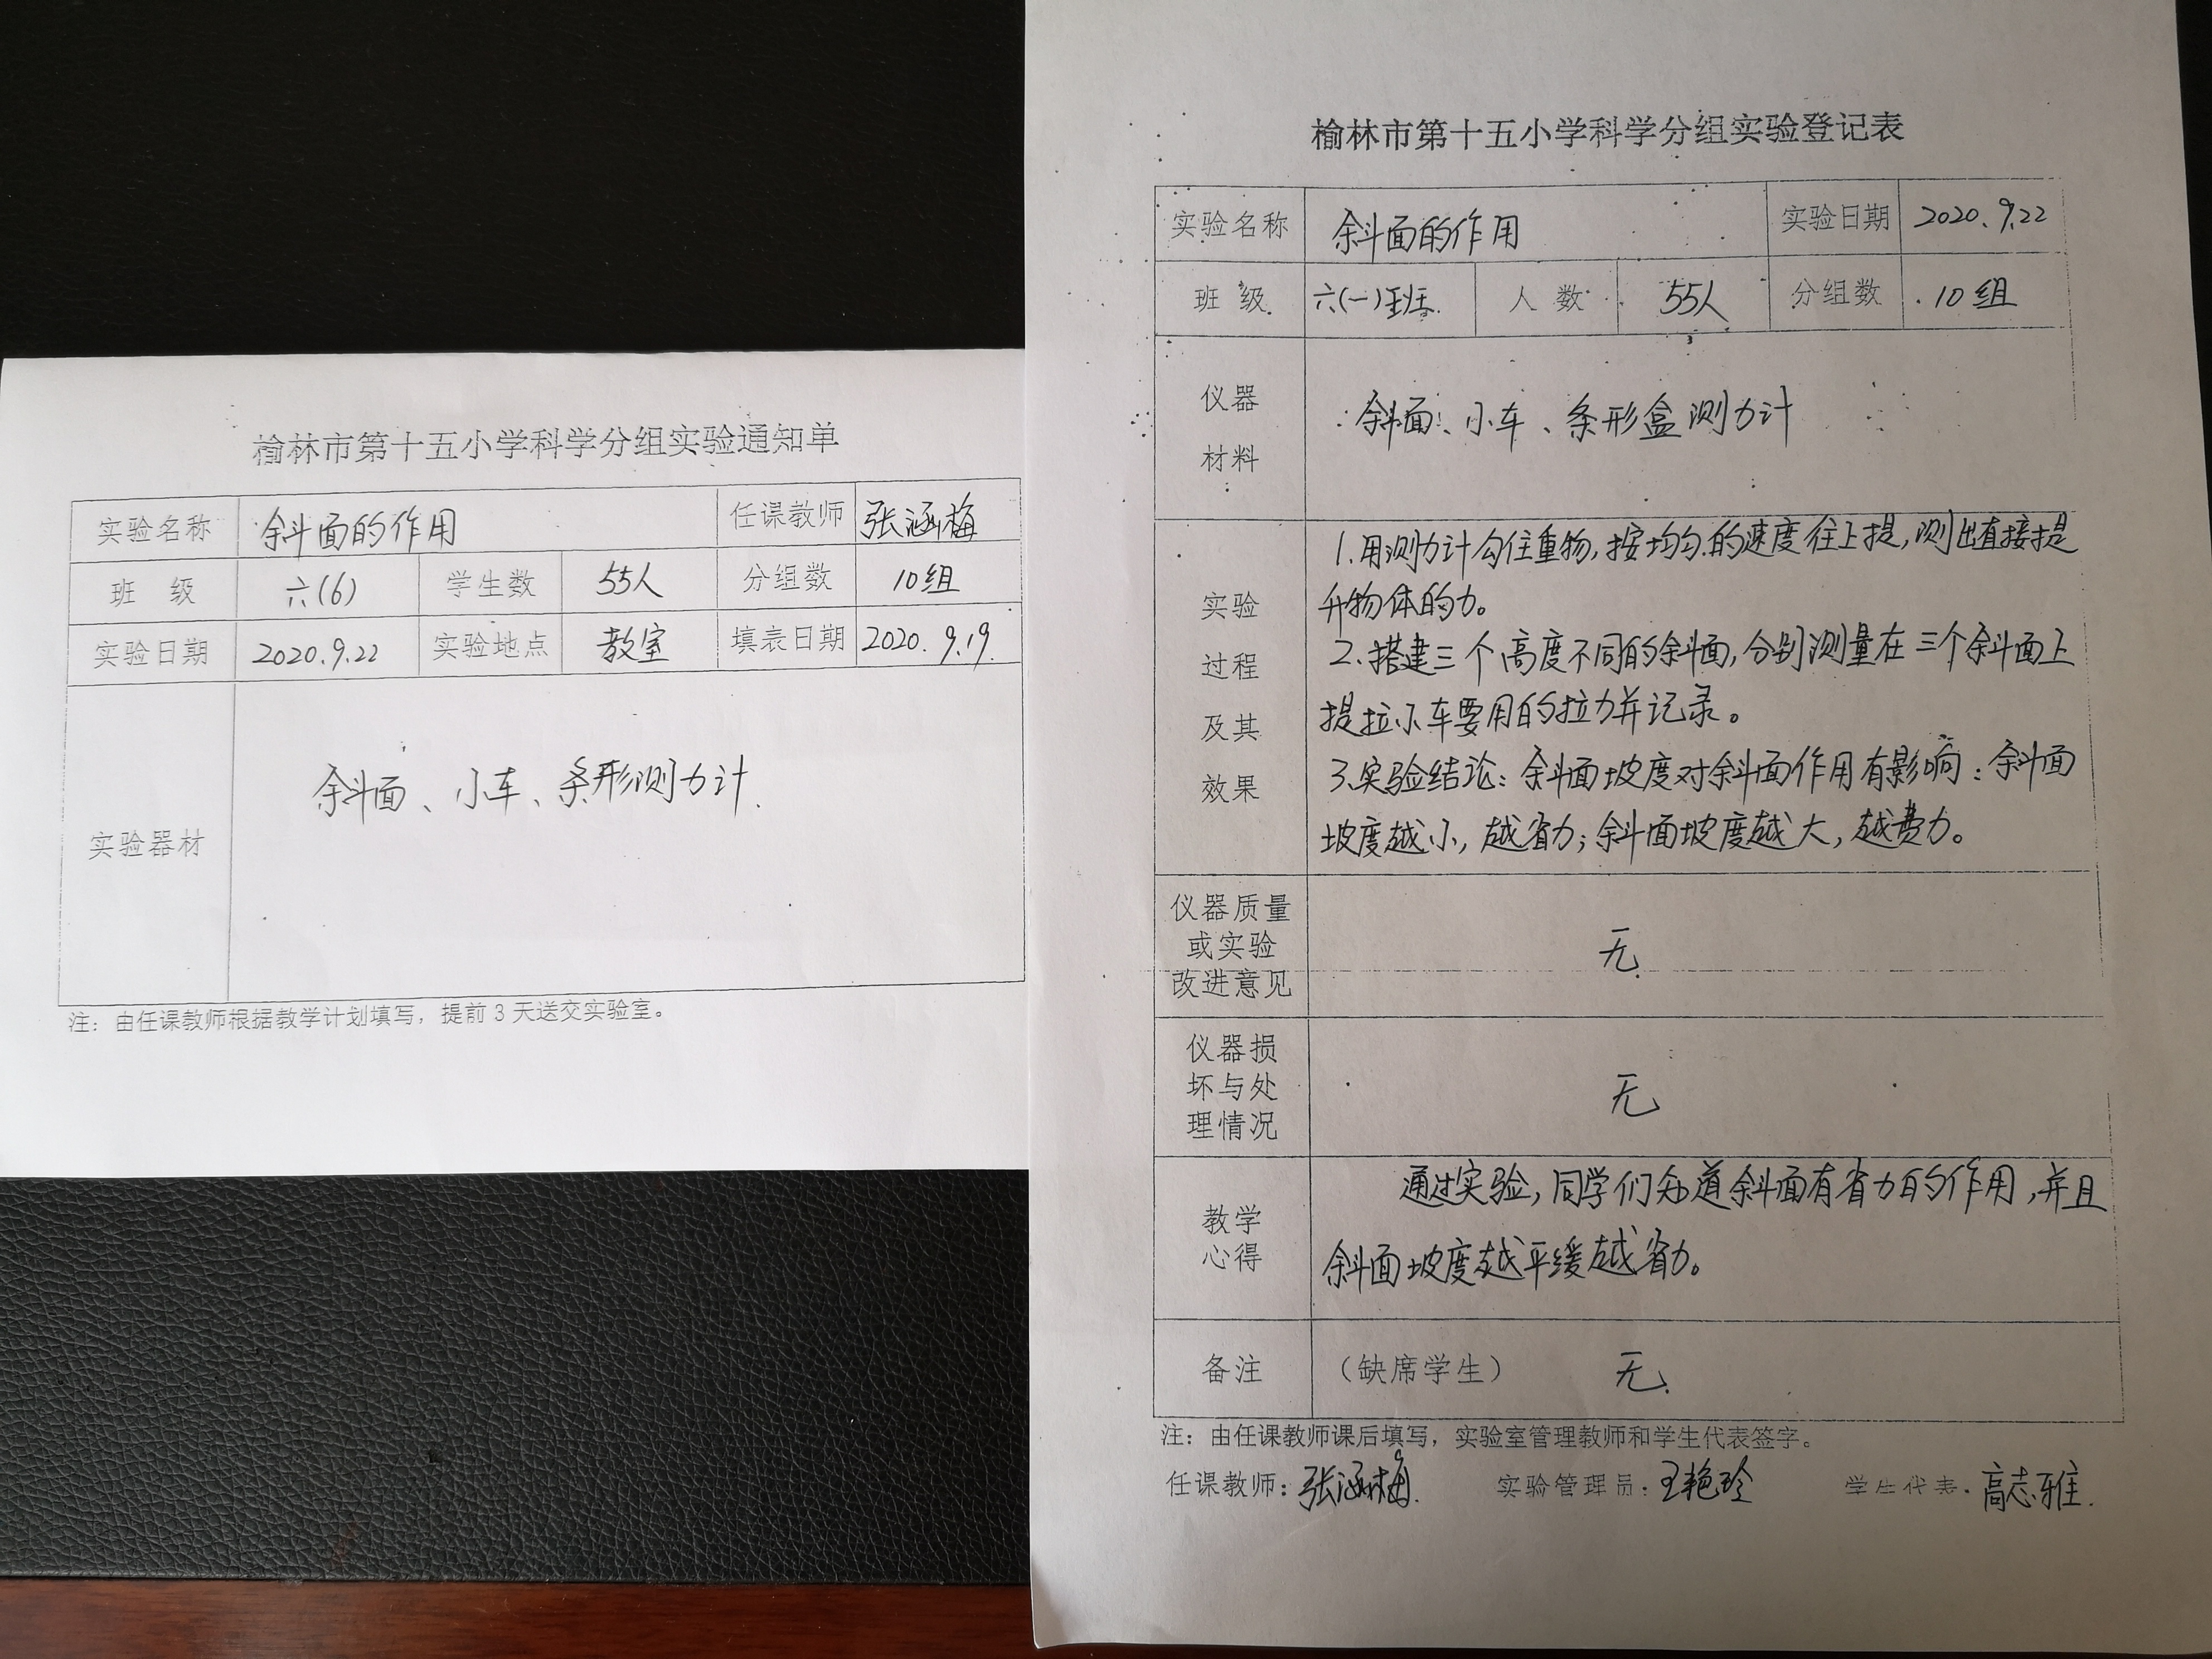 榆林市第十五小学科学分组实验通知单
实验名称 斜面的作用 任课教师 张涵梅
班 级 六(6) 学生数 55人 分组数 10组
实验日期 2020.9.22 实验地点 教室 填表日期 2020.9.19.
实验器材 斜面、小车、条形测力计.
注：由任课教师根据教学计划填写，提前3天送交实验室。
榆林市第十五小学科学分组实验登记表
实验名称 斜面的作用 实验日期 2020.9.22
班 级 六(一)班 人 数 55人 分组数 10组
仪器
材料
斜面、小车、条形盒测力计
实验
过程
及其
效果
1.用测力计勾住重物,按均匀的速度往上提,测出直接提
升物体的力。
2.搭建三个高度不同的斜面,分别测量在三个斜面上
提拉小车要用的拉力并记录。
3.实验结论:斜面坡度对斜面作用有影响:斜面
坡度越小,越省力;斜面坡度越大,越费力。
仪器质量
或实验
改进意见
无
仪器损
坏与处
理情况
无
教学
心得
通过实验,同学们知道斜面有省力的作用,并且
斜面坡度越平缓越省力。
备注 （缺席学生） 无
注：由任课教师课后填写，实验室管理教师和学生代表签字。
任课教师：张涵梅 实验管理员：王艳玲 学生代表：高志雅